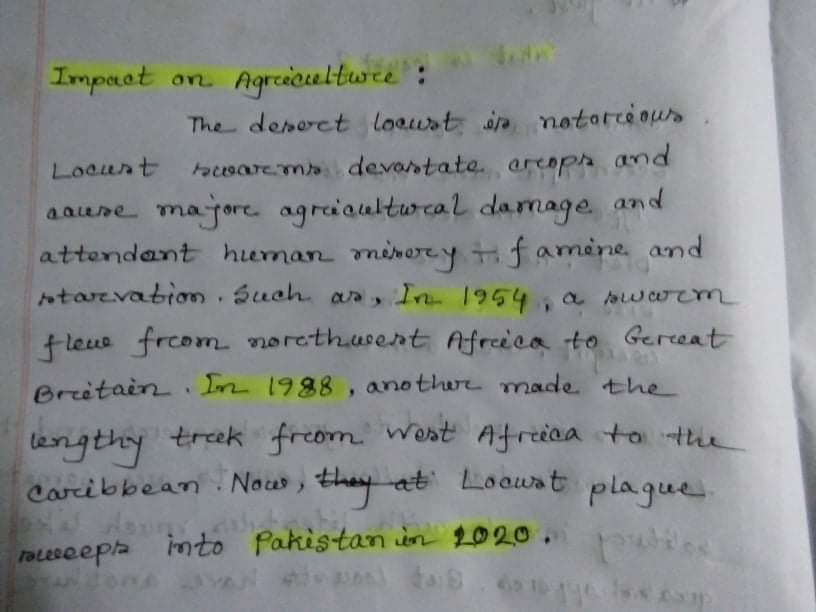 Impact on Agriculture :
The desert locust is notorious.
Locust swarms devastate crops and
cause major agricultural damage and
attendant human misery ÷ famine and
starvation. Such as, In 1954, a swarm
flew from northwest Africa to Great
Britain. In 1988, another made the
lengthy trek from West Africa to the
Caribbean. Now, they at Locust plague
sweeps into Pakistan in 2020.